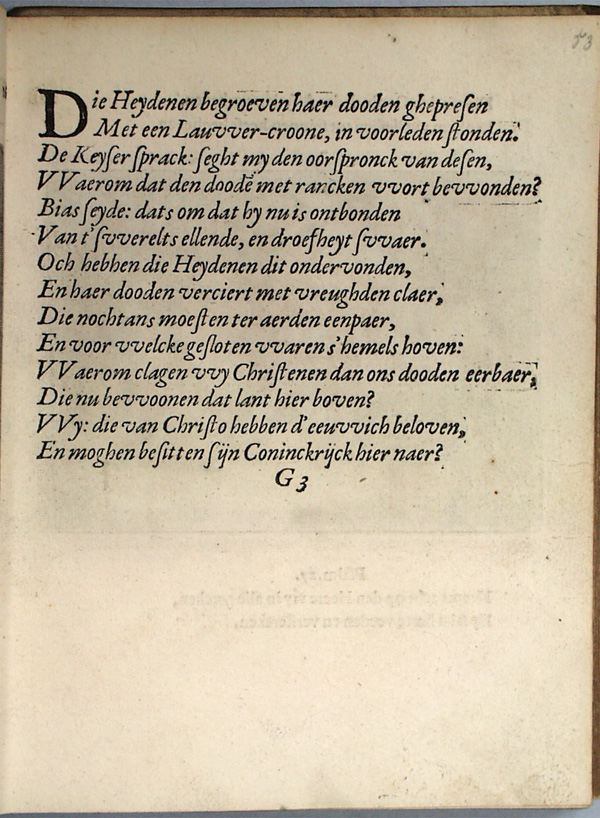 53
Die Heydenen begroeven haer dooden ghepresen
Met een Lauvver-croone, in voorleden stonden:
De Keyser sprack: seght my den oorspronck van desen,
VVaerom dat den doodē met rancken vvort bevvonden?
Bias seyde: dats om dat hy nu is ontbonden
Van t'svverelts ellende, en droefheyt svvaer.
Och hebben die Heydenen dit ondervonden,
En haer dooden verciert met vreughden claer,
Die nochtans moesten ter aerden eenpaer,
En voor vvelcke gesloten vvaren s'hemels hoven:
VVaerom clagen vvy Christenen dan ons dooden eerbaer,
Die nu bevvoonen dat lant hier boven?
VVy: die van Christo hebben d'eeuvvich beloven,
En moghen besitten sijn Coninckrijck hier naer?
G 3